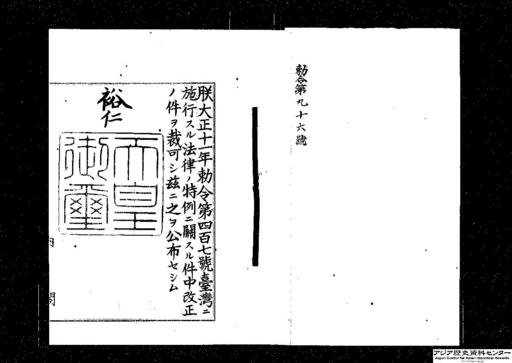 勅令第九十六號
朕大正十一年勅令第四百七號臺灣ニ
施行スル法律ノ特例ニ關スル件中改正
ノ件ヲ裁可シ茲ニ之ヲ公布セシム
裕仁
天皇
御璽
アジア歴史資料センター
Japan Center for Asian Historical Records